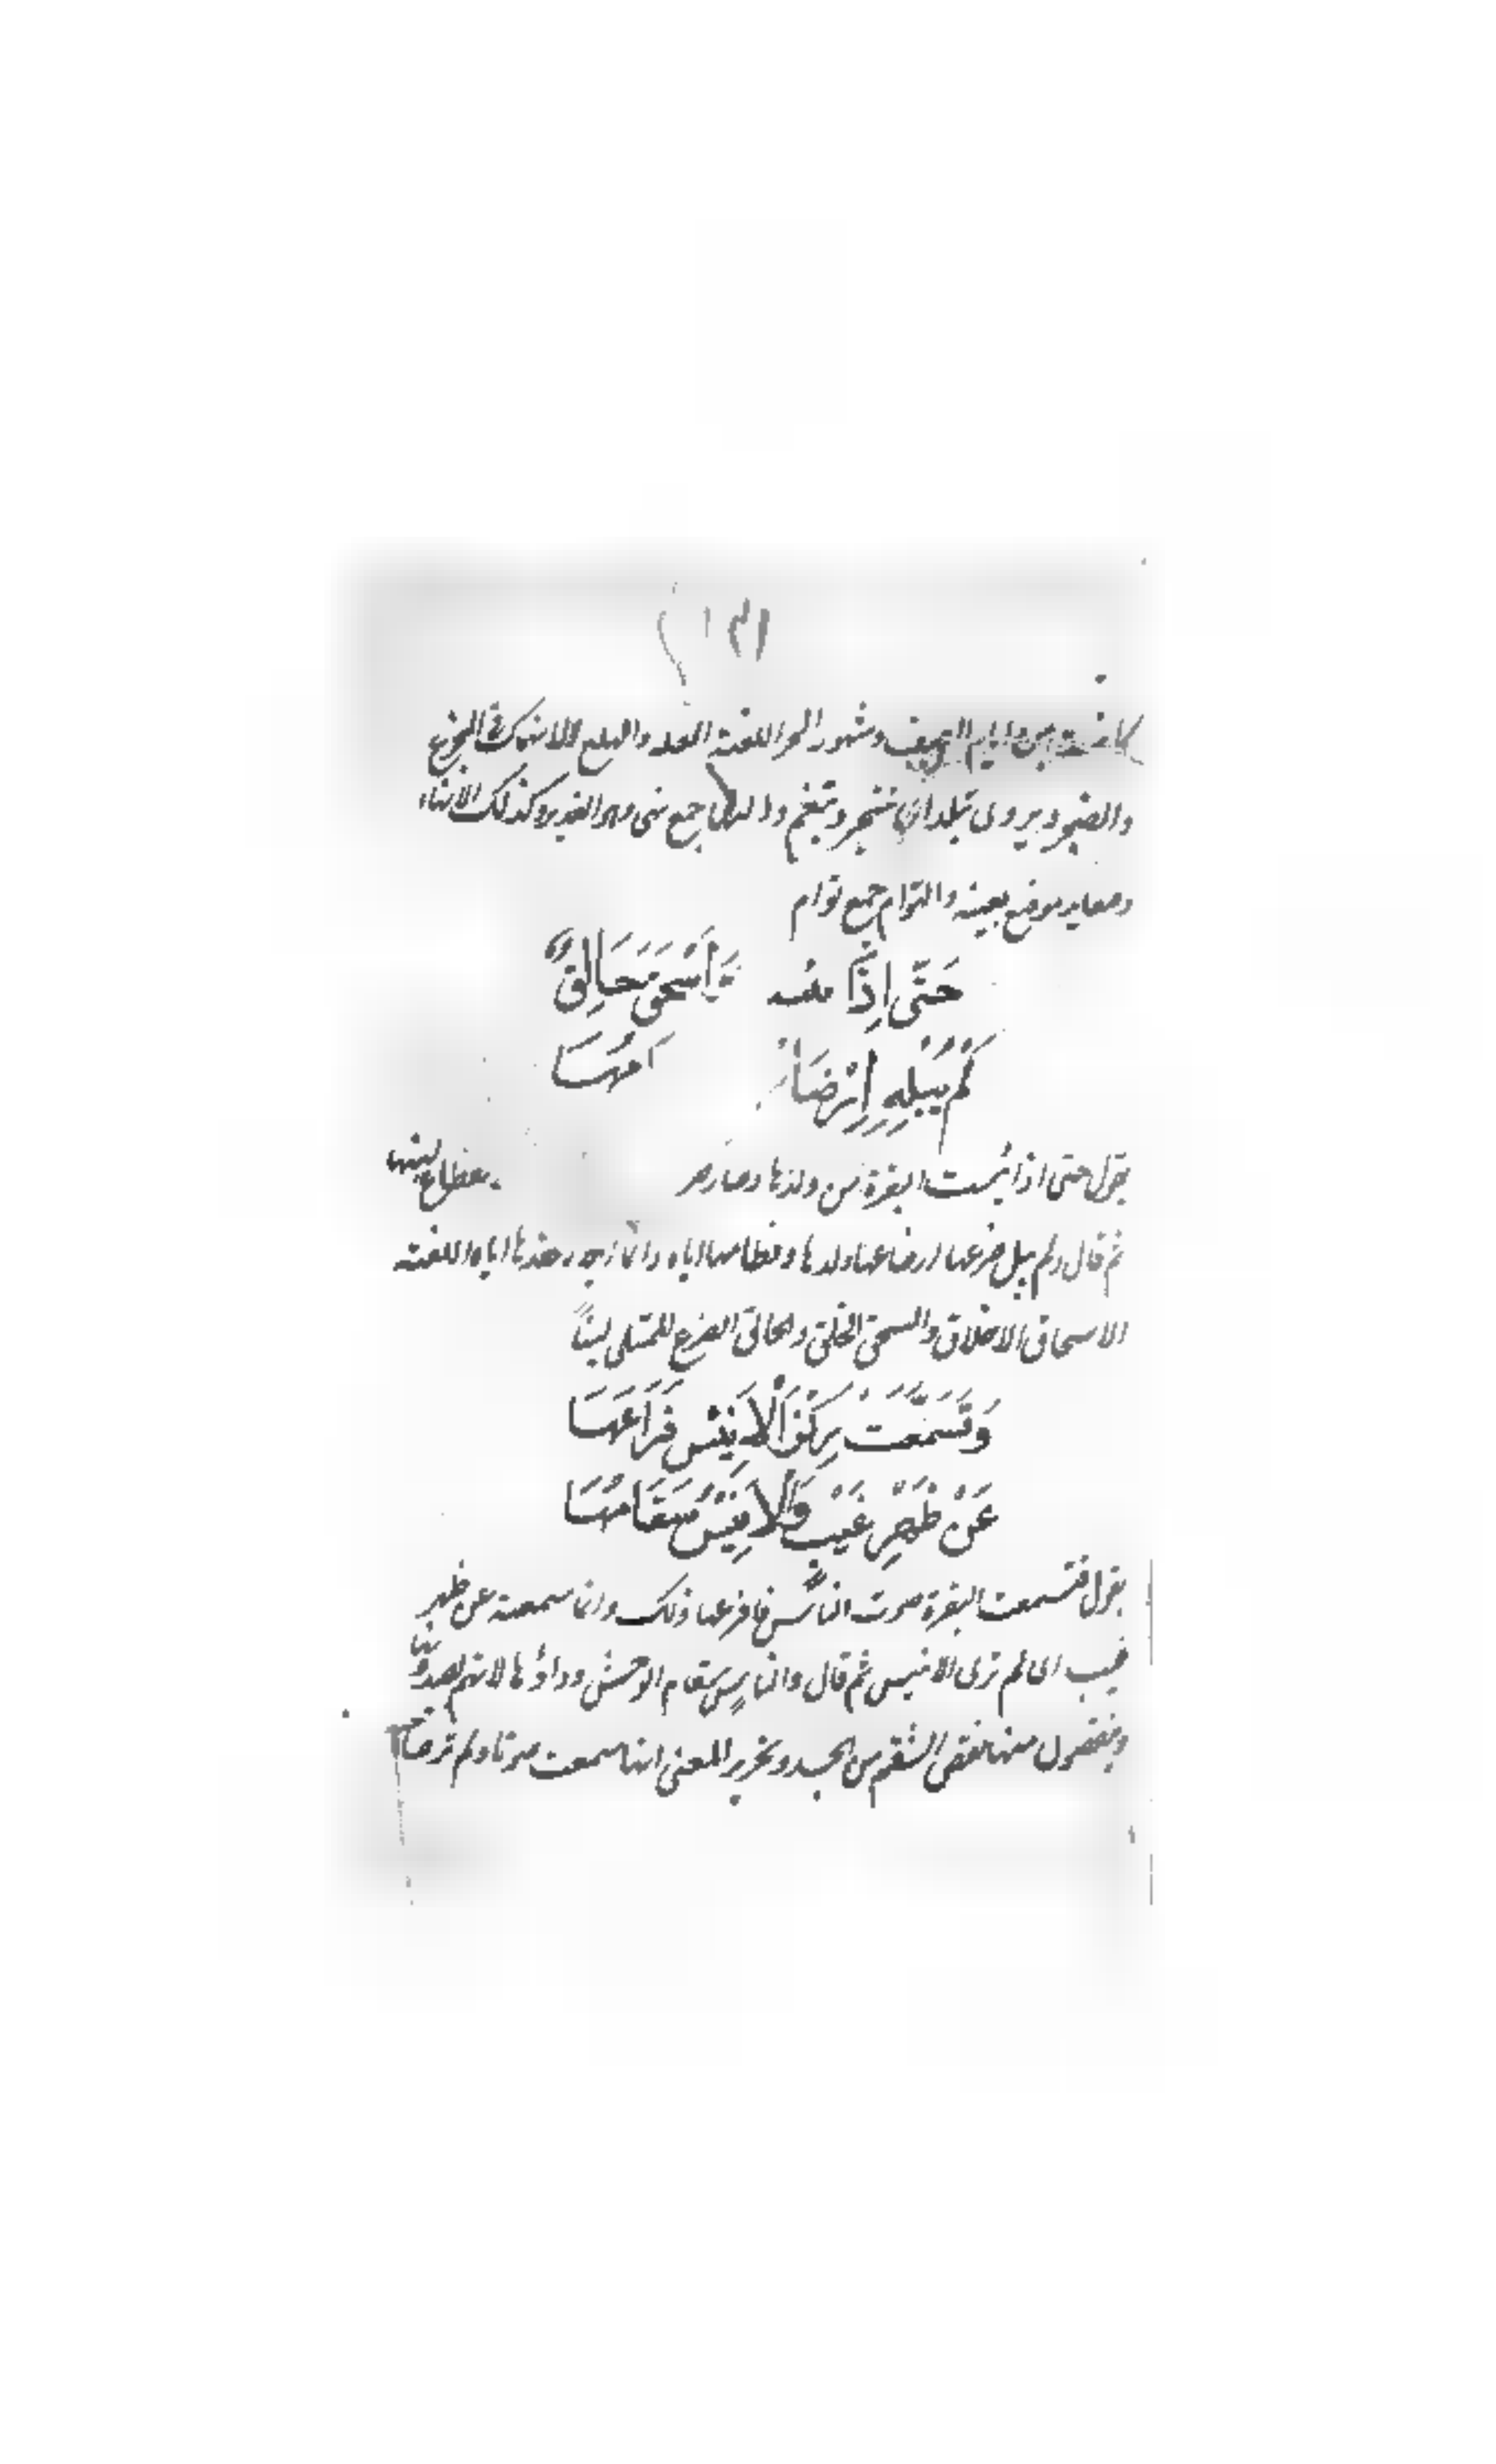 كانت من ايام الصيف وشهور الحر اللغة العله والهلع الانهماك في الجزع
والضجر ويروى تبلد اى تتحير و والنهاء جمع نهى وهو الغدير وكذلك الانهاء
وصعايد موضع بعينه والتوام جمع توام
حَتَّى اِذَا وَاَسْحَقَ حَالِقٌ
لَمْ يُبْلِهِ اِرْضَا مُهَا
يقول حتى اذا ئيست البقرة من ولدها وصار لبنها
ثم قال ولم يبل ضرعها ارضاعها ولدها وفطامها اياه وانما فقدها اياه اللغة
الاسحاق الاخلاق والسحق الخلق والحالق الضرع الممتلى لبنًا
وَتَسَمَّعَتْ رِكْزَ الْاَنِيْسِ فَرَاعَهَا
عَنْ ظَهْرِ غَيْبٍ وَالْاَنِيْسُ سَقَامُهَا
يقول فتسمعت البقرة صوت الناس فافزعها ذلك وانما سمعته عن ظهر
غيب اى لم ترى الانيس ثم قال والناس سقام الوحش وداؤها لانهم يصيدونها
وينقصون منها نقص السقم من الجسد وتحرير المعنى انها سمعت صوتا ولم تر صاحب